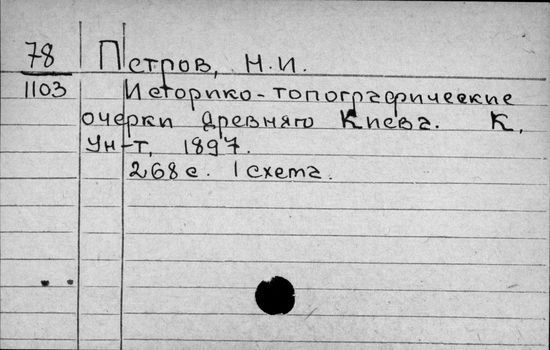 78 Петров, Н.И.
1103 Историко-топографические
очерки древняго Киева. К,
Ун-т, 1897.
268с. 1 схема.